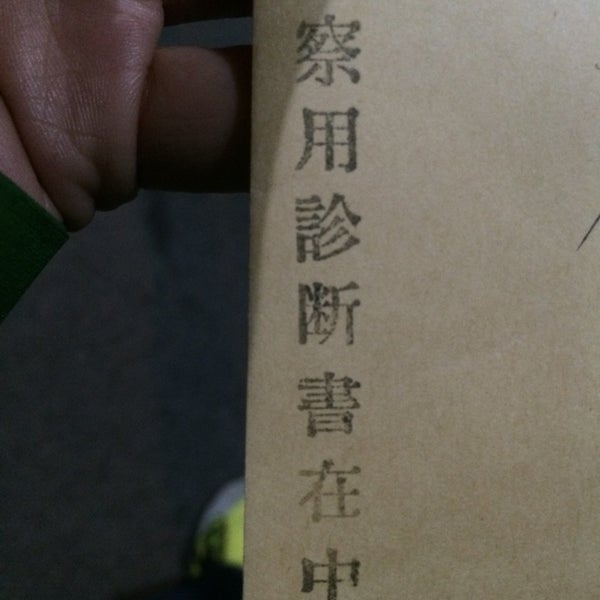 察用診断書在中